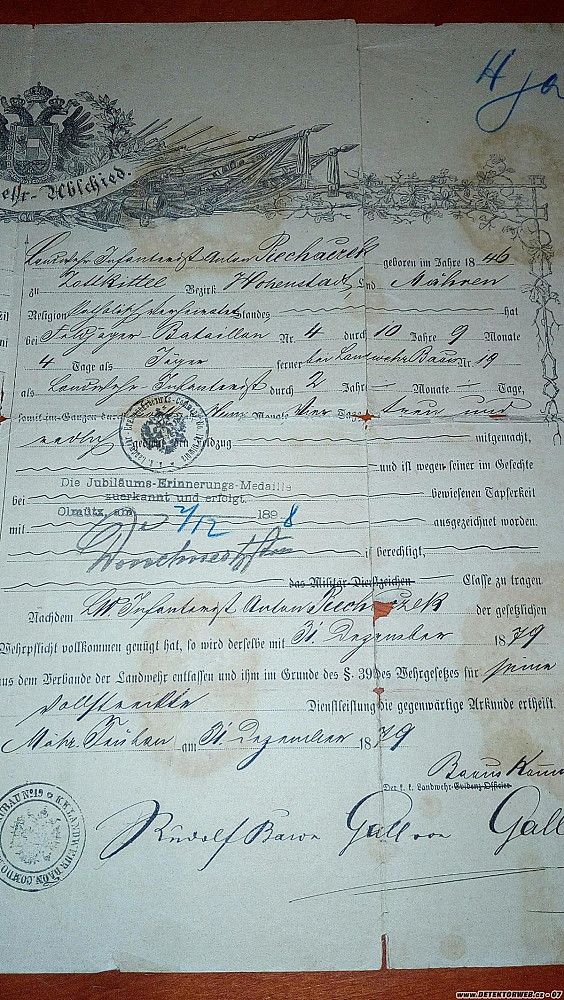 H
ehr-Abschied.
Landwehr Infanterist Anton Rechaczek geboren im Jahre 1846
zu Zottkittel Bezirk Hohenstadt, Land Mähren
Religion Katholisch Verheiratet Standes hat
bei Feldjäger-Bataillon Nr. 4 durch 10 Jahre 9 Monate
4 Tage als Jäger ferner bei Landwehr Baon Nr. 19
als Landwehr-Infanterist durch 2 Jahr Monate Tage,
somit im Ganzen durch Monate Vier Tage treu und
redlich gedient, den Feldzug mitgemacht,
und ist wegen seiner im Gefechte
Die Jubiläums-Erinnerungs-Medaille
zuerkannt und erfolgt.
bei bewiesenen Tapferkeit
Olmütz, am 2/12 1898
mit ausgezeichnet worden.
ist berechtigt,
das Militär-Dienstzeichen Classe zu tragen
Nachdem LW. Infanterist Anton Rechaczek der gesetzlichen
Wehrpflicht vollkommen genügt hat, so wird derselbe mit 31. Dezember 1879
aus dem Verbande der Landwehr entlassen und ihm im Grunde des §. 39 des Wehrgesetzes für seine
vollstreckte Dienstleistung die gegenwärtige Urkunde ertheilt.
Mähr. Trübau am 31. Dezember 1879
Baons
Der k. k. Landwehr-Evidenz-Officier
Rudolf Baron Gall von Gall
www.DETEKTORWEB.cz - 07